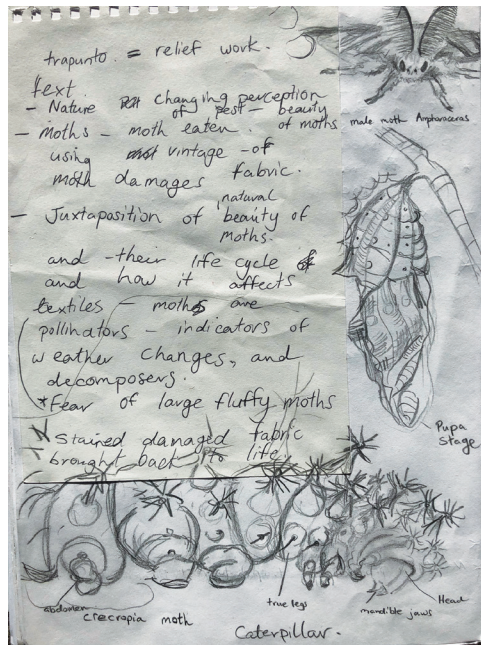 trapunto. = relief work.
text.
- Nature changing perception
of pest - beauty
of moths
- moths - moth eaten.
using vintage - of
moth damages fabric.
natural
- Juxtaposition of beauty of
moths.
and - their life cycle
and how it affects
textiles - moths are
pollinators - indicators of
weather changes, and
decomposers.
*Fear of large fluffy moths
* Stained damaged fabric
brought back to life.
male moth
Pupa
Stage
abdomen
Crecropia moth
true legs
mandible jaws
Head
Caterpillar.